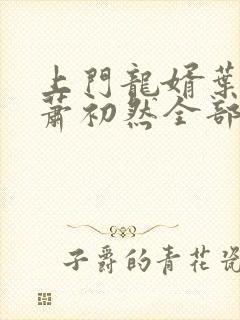 上門龍婿葉
蕭初然全部
子爵的青花瓷